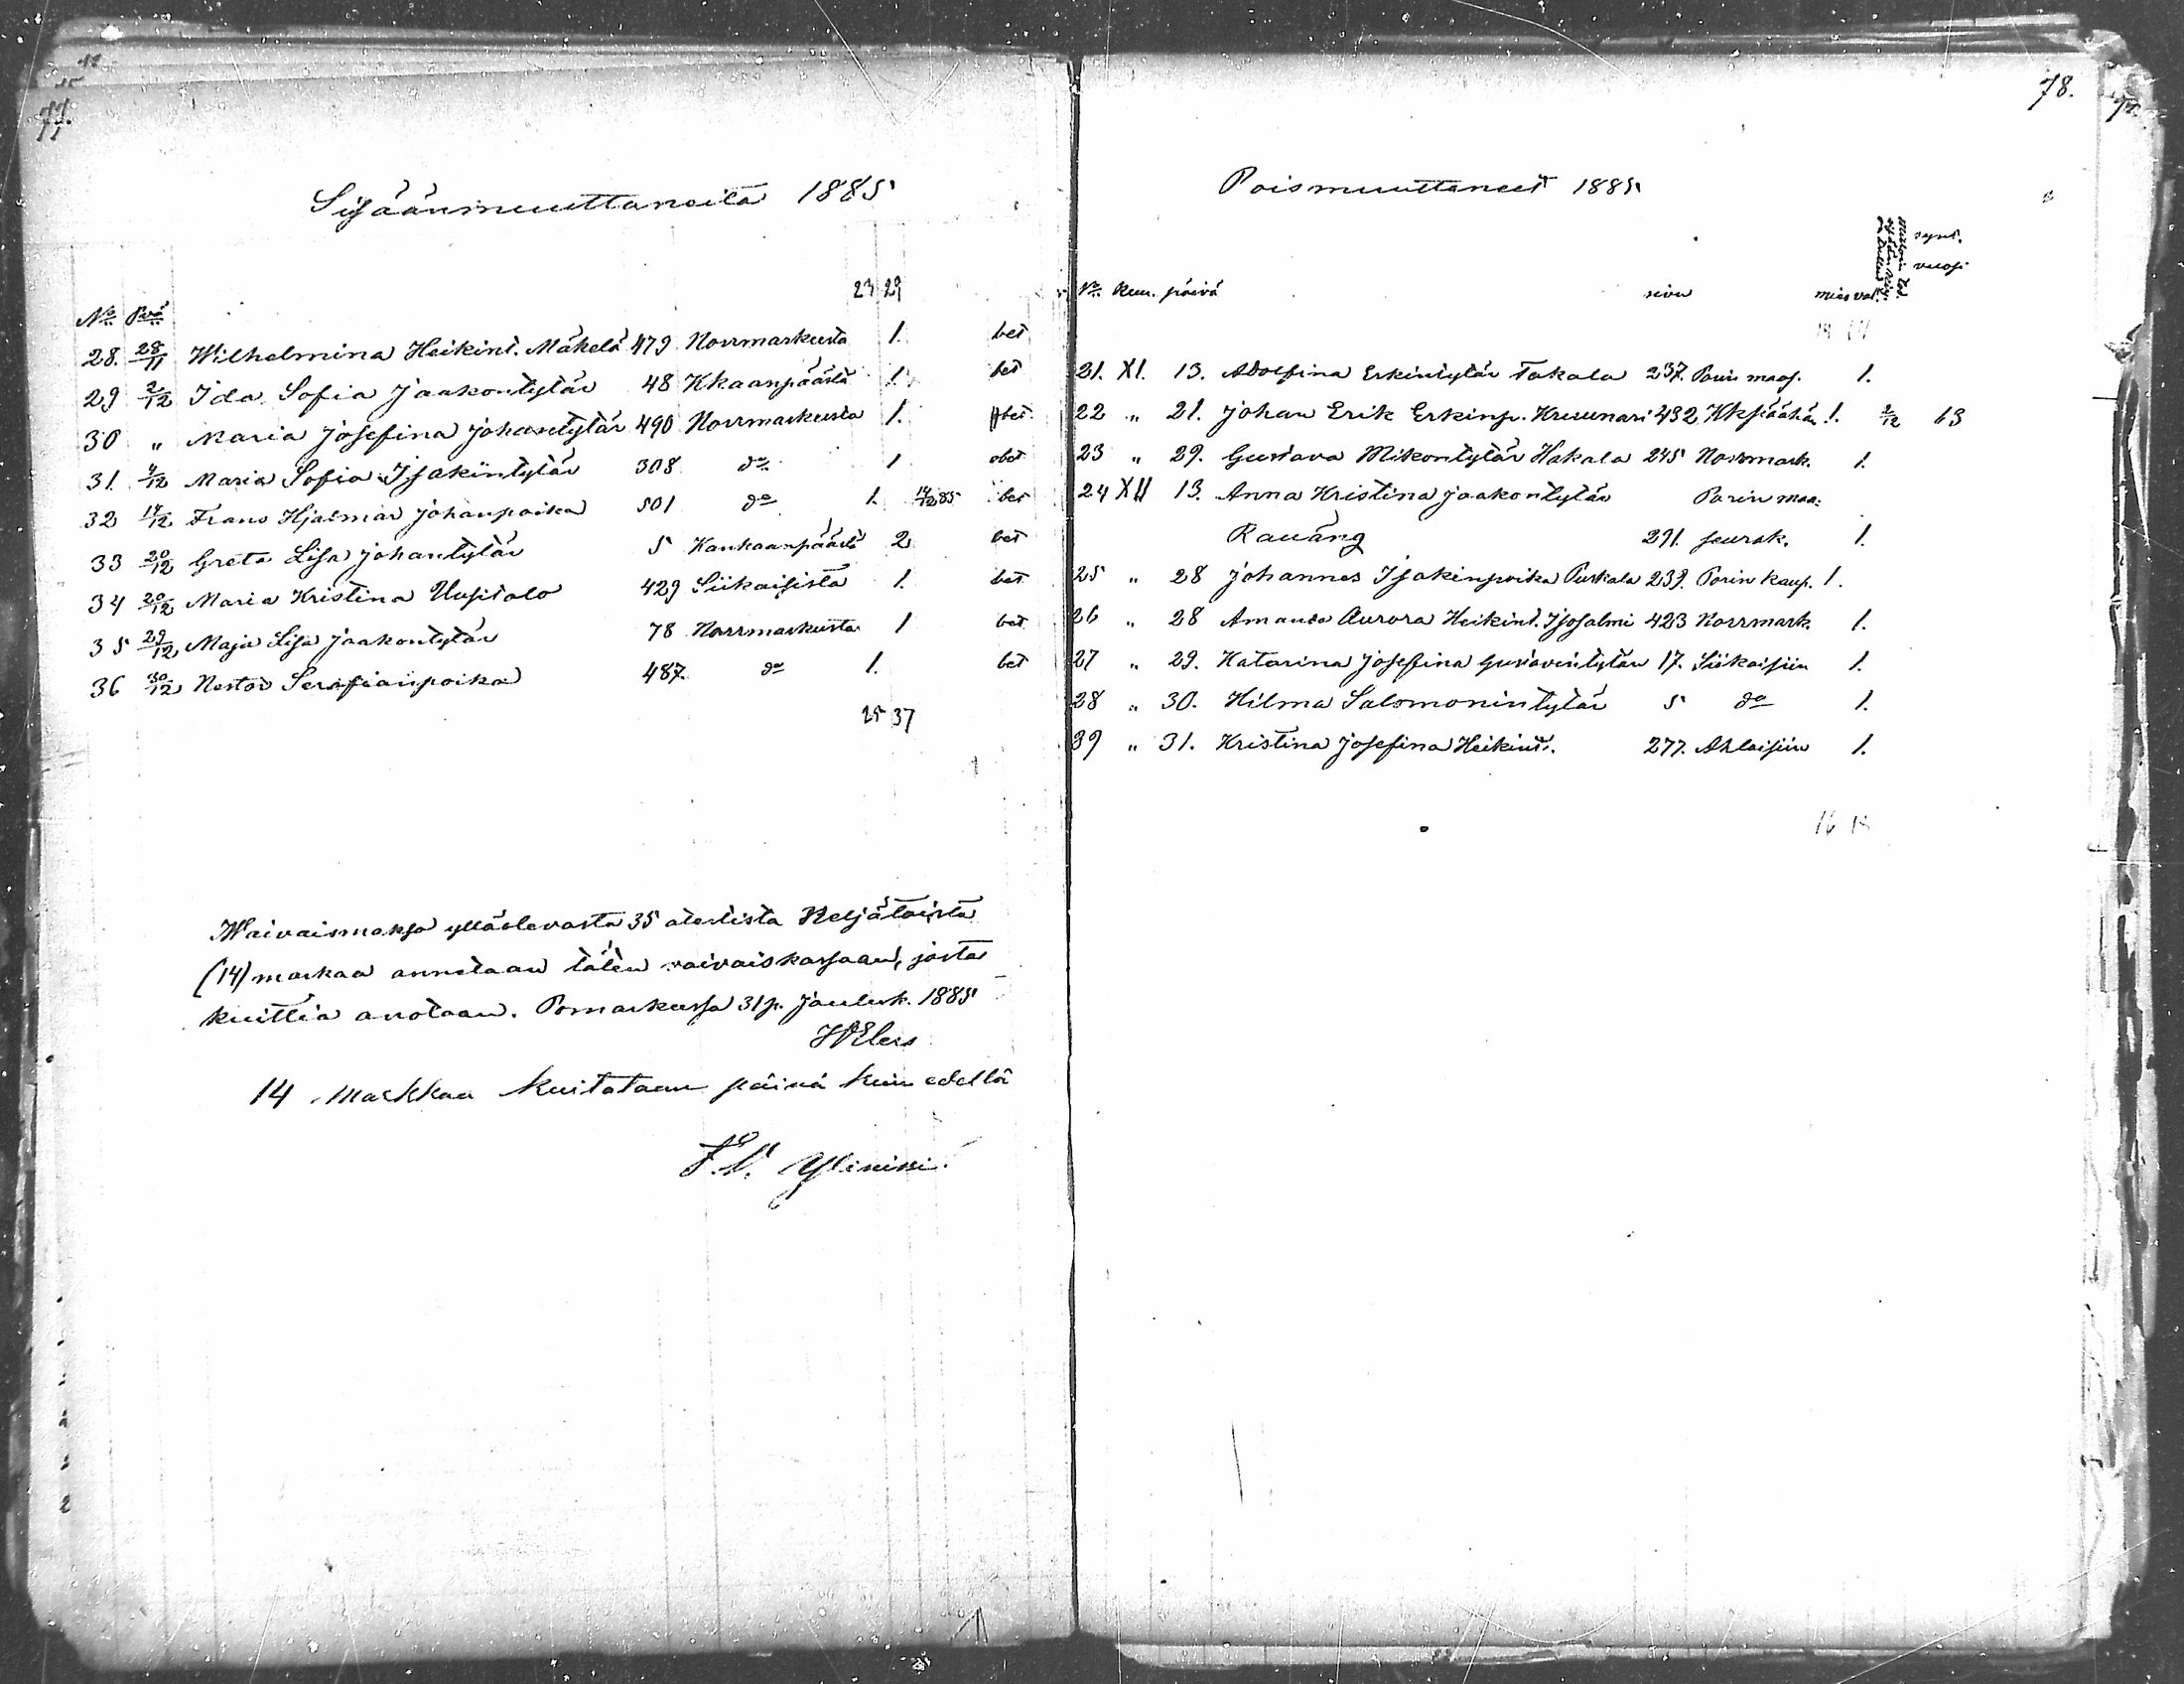 77.
Sisäänmuuttaneita 1885
23 29
No Pvä
28. 28/11 Wilhelmina Heikint. Mäkelä 479 Norrmarkusta 1. bet
29 2/12 Ida Sofia Jaakontytär 48 Kkaanpäästä 1. bet
30 " Maria Josefina Johantytär 490 Norrmarkusta 1. bet
31. 4/12 Maria Sofia Isakintytär 308 do 1
32 14/12 Frans Hjalmar Johanpoika 501 do 1. 14/12 85 bet
33 20/12 Greta Lisa Johantytär 5 Kankaanpäästä 2 bet
34 20/12 Maria Kristina Uusitalo 429 Siikaisista 1. bet
35 29/12 Maja Lisa Jaakontytär 78 Norrmarkusta 1 bet
36 30/12 Nestor Serafianpoika 487. do 1. bet
25 37
Waivaismaksa ylläolevasta 35 atestista Neljätoista
(14) markaa annetaan täten vaivaiskassaan, josta
kuittia anotaan. Pomarkussa 31 p. Jouluk. 1885
14 Markkaa kuitataan päivä kuin edellä
78.
Poismuuttaneet 1885
synt.
vuosi
No Kuu. päivä sivu mies vai.
21. XI. 13. Adolfina Erkintytär Takala 237. Porin maas. 1.
22 " 21. Johan Erik Erkinp. Kruunari 432 Kkpäähän 1. 2/12 63
23 " 29. Gustava Mikontytär Hakala 245 Norrmark. 1.
24 XII 13. Anna Kristina Jaakontytär Porin maa.
Rauäng 291. seurak. 1.
25 " 28 Johannes Isakinpoika Puskala 239. Porin kaup. 1.
26 " 28 Amanda Aurora Heikint. Isosalmi 423 Norrmark. 1.
27 " 29. Katarina Josefina Gustaventytär 17. Siikaisiin 1.
28 " 30. Hilma Salomonintytär 5 do 1.
39 " 31. Kristina Josefina Heikint. 277. Ahlaisiin 1.